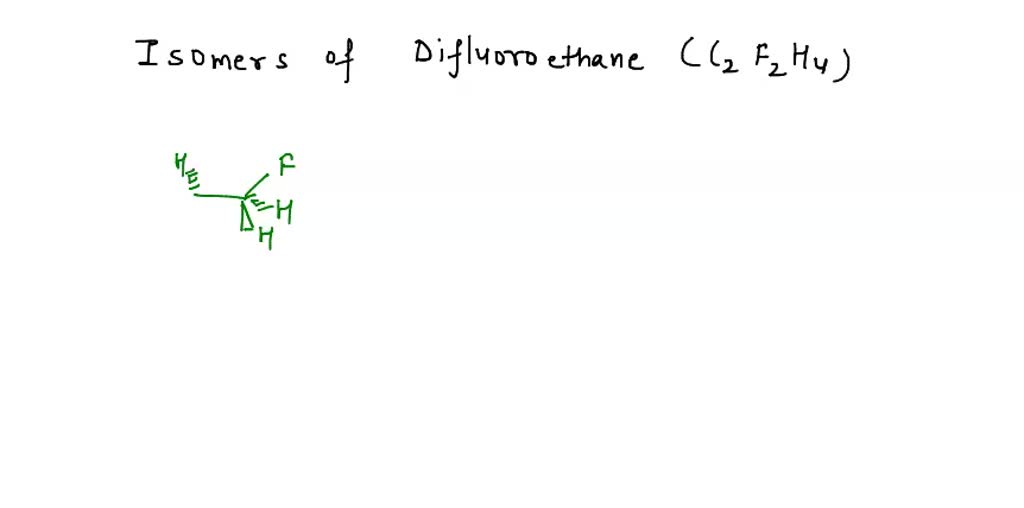 Isomers of Difluoroethane (C₂F₂H₄)
H F
H
H